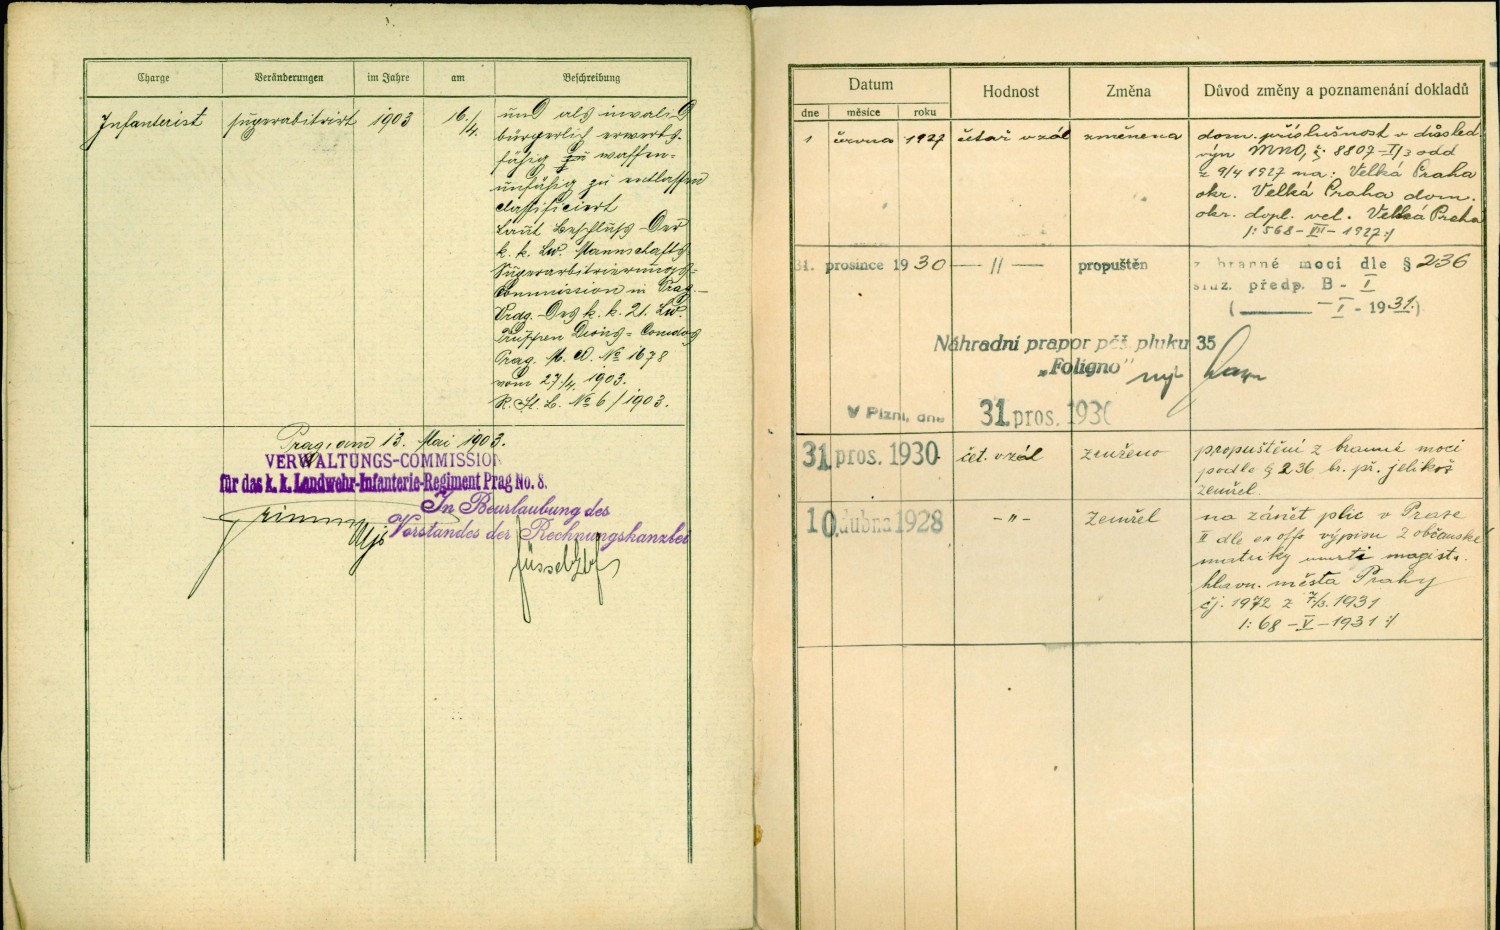 Charge Veränderungen im Jahre am Beschreibung
Infanterist superarbitrirt 1903 16./4. und als invalid
bürgerlich erwerbs-
fähig zu waffen=
unfähig zu entlassen
classificiert
Laut Beschluss der
k. k. Lw. Mannschafts-
Superarbitrierungs=
Commission in Prag.-
Vrdg. des k. k. 21. Lw.
Truppen Divis= Comdos
Prag. M. A. No 1678
vom 27./4. 1903.
R. St. B. No 6/1903.
Prag, am 13. Mai 1903.
VERWALTUNGS-COMMISSION
für das k. k. Landwehr-Infanterie-Regiment Prag No. 8.
In Beurlaubung des
Vorstandes der Rechnungskanzlei
Datum Hodnost Změna Důvod změny a poznamenání dokladů
dne měsíce roku
1 června 1927 četař v zál změněna dom. příslušnost v důsled.
výn MNO, č. 8807-I/3 odd
z 9/4 1927 na: Velká Praha
okr. Velká Praha dom.
okr. dopl. vel. Velká Praha
/: 568 - VII - 1927 :/
31. prosince 1930 — " — propuštěn z branné moci dle § 236
služ. předp. B - I
( — I - 1931.)
Náhradní prapor pěš. pluku 35
„Foligno"
V Plzni, dne 31. pros. 1930
31 pros. 1930. čet. v zál zrušeno propuštění z branné moci
podle § 236 br. př. jelikož
zemřel.
10. dubna 1928 - " - zemřel na zánět plic v Praze
II dle výpisu z občanské
matriky úmrtí magistr.
hlavn. města Prahy
čj. 1972 z 7/3. 1931
/: 68 - V - 1931 :/